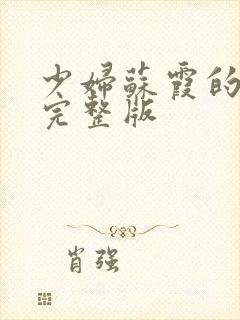 少婦蘇霞的
完整版
肖强